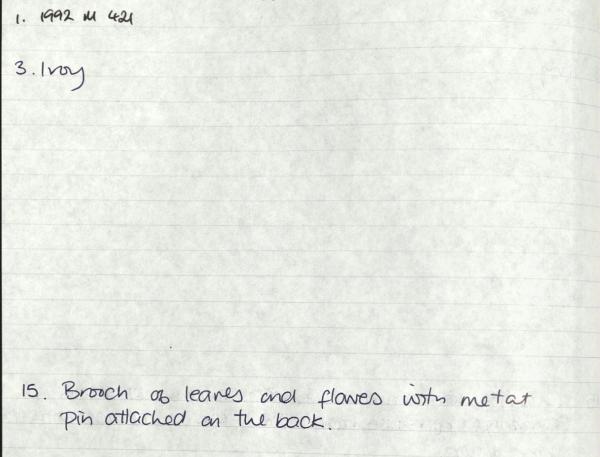 1. 1992 M 421
3. Ivoy
15. Brooch of leaves and flowes with metal
pin attached on the back.